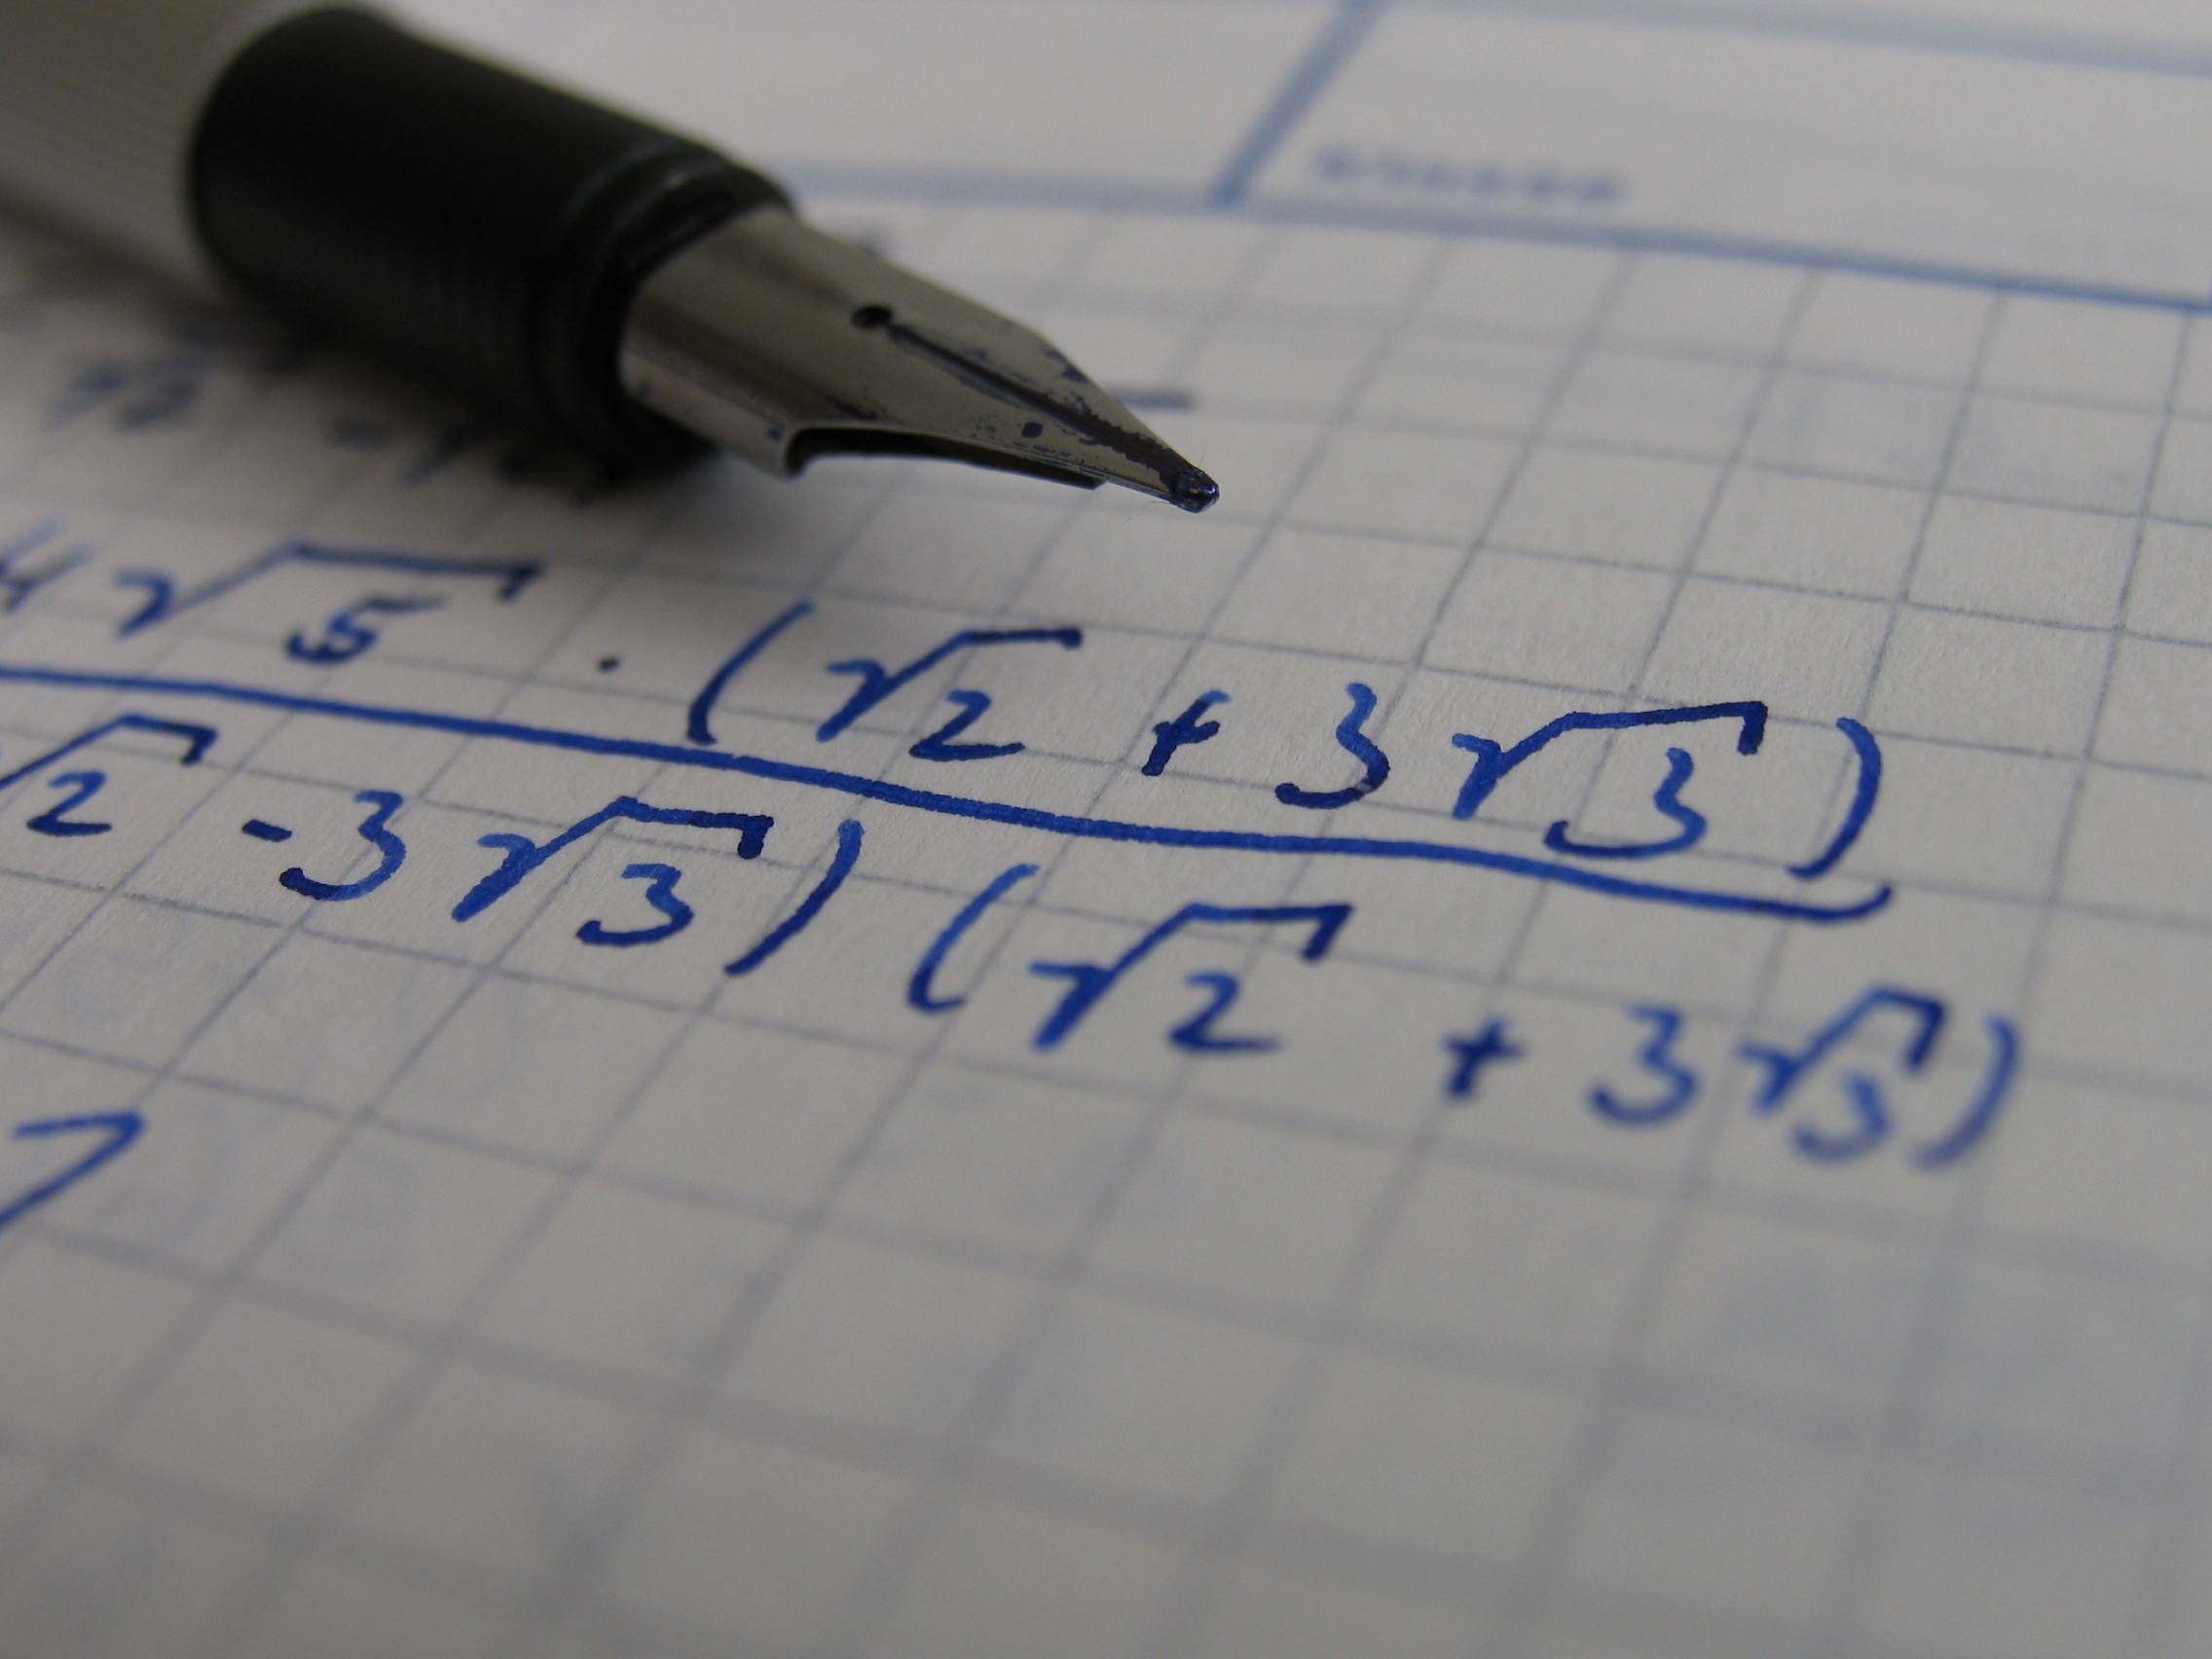 4√5 · (√2 + 3√3)
√2 - 3√3) (√2 + 3√3)
7